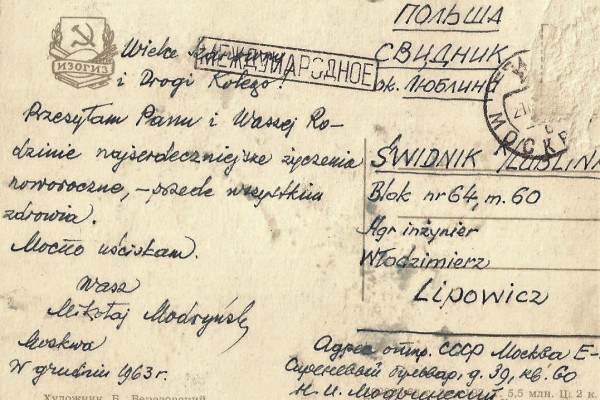 ИЗОГИЗ
Wielce Szanowny
МЕЖДУНАРОДНОЕ
i Drogi Kolego!
Przesyłam Panu i Waszej Ro-
dzinie najserdeczniejsze życzenia
noworoczne, – przede wszystkim
zdrowia.
Mocno uściskam.
Wasz
Mikołaj Modzyński
Moskwa
W grudniu 1963 r.
Художник Б. Березовский
ПОЛЬША
СВИДНИК
ок. ЛЮБЛИНА
МОСКВ
ŚWIDNIK /LUBLINA
Blok nr 64, m. 60
Agr inżynier
Włodzimierz
Lipowicz
Адрес отпр. СССР Москва Е-
Сиреневый бульвар, д. 39, кв. 60
Н. И.
5,5 млн. Ц. 2 к.